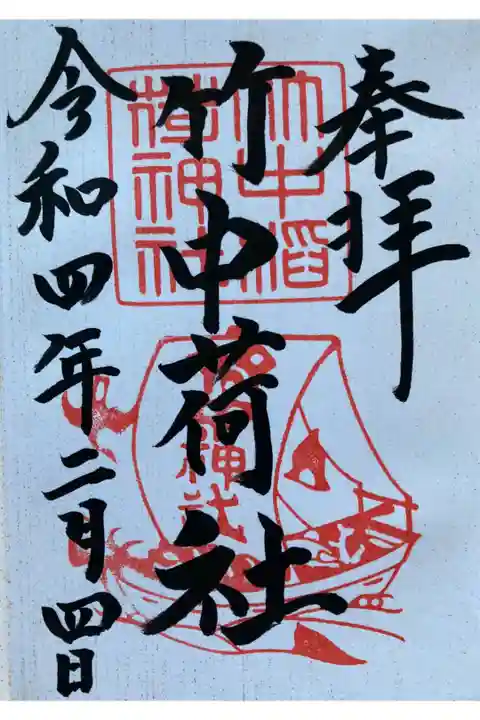 奉拝
竹中荷社
令和四年二月四日
竹中稲
荷神社
神社